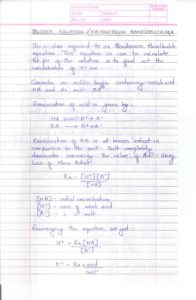 BUFFER EQUATION / HENDERSON HASSELBALCH
This is also referred to as Henderson Hasselbalch
equation. This equation is use to calculate
the pH of the solution is to find out the
concentration of H⁺ ion.
Consider an acidic buffer containing weak acid
HA and its salt BA.
Ionization of acid is given by:
HA ⇌ H⁺ + A⁻
BA → B⁺ + A⁻
Ionization of HA is at lesser extent in
comparison to the salt that completely
dissociates increasing the value of A⁻. Using
law of Mass Action
Ka = [H⁺][A⁻]
[HA]
[HA] - initial concentration
[H⁺] - conc of weak acid
[A⁻] - " " salt
Rearranging the equation, we get:
H⁺ = Ka [HA]
[A⁻]
H⁺ = Ka acid
salt